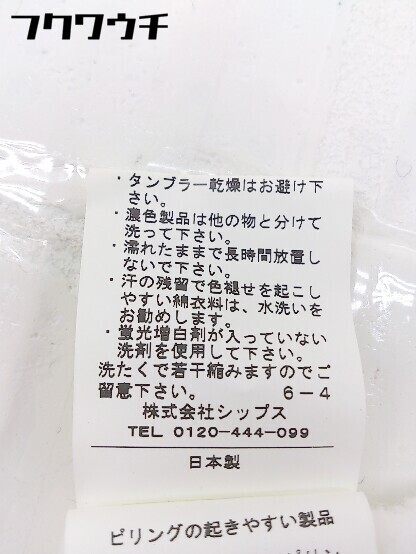 フクワウチ
・タンブラー乾燥はお避け下
さい。
・濃色製品は他の物と分けて
洗って下さい。
・濡れたままで長時間放置し
ないで下さい。
・汗の残留で色褪せを起こし
やすい綿衣料は、水洗いを
お勧めします。
・蛍光増白剤が入っていない
洗剤を使用して下さい。
洗たくで若干縮みますのでご
留意下さい。 6-4
株式会社シップス
TEL 0120-444-099
日本製
ピリングの起きやすい製品